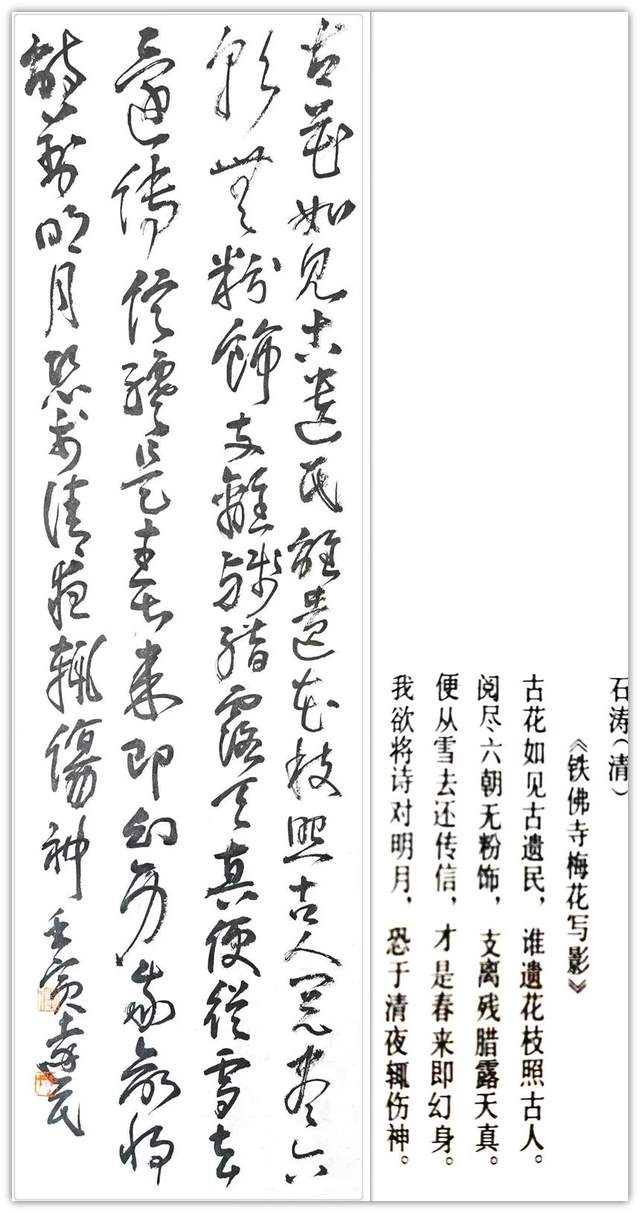 古花如見古遺民誰遺花枝照古人閱盡六
朝無粉飾支離殘臘露天真便從雪去
還傳信纔是春來即幻身我欲將
詩對明月恐於清夜輒傷神 壬寅
石涛（清）
《铁佛寺梅花写影》
古花如见古遗民，谁遗花枝照古人。
阅尽六朝无粉饰，支离残腊露天真。
便从雪去还传信，才是春来即幻身。
我欲将诗对明月，恐于清夜辄伤神。